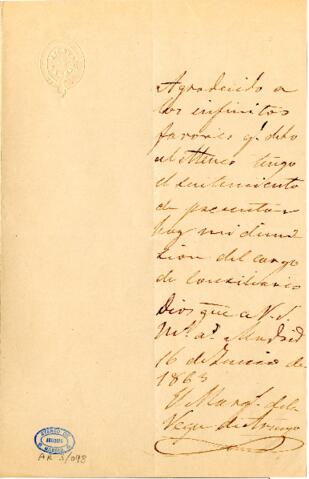 Agradecido a
los infinitos
favores q.e debo
al Ateneo tengo
el sentimiento
de presentar
hoy mi dimi
sion del cargo
de Consiliario
Dios gue a V. S.
m.s a.s Madrid
16 de Junio de
1863
El Marq.s de la
Vega de Armijo
ATENEO DE
MADRID
AR 3/098